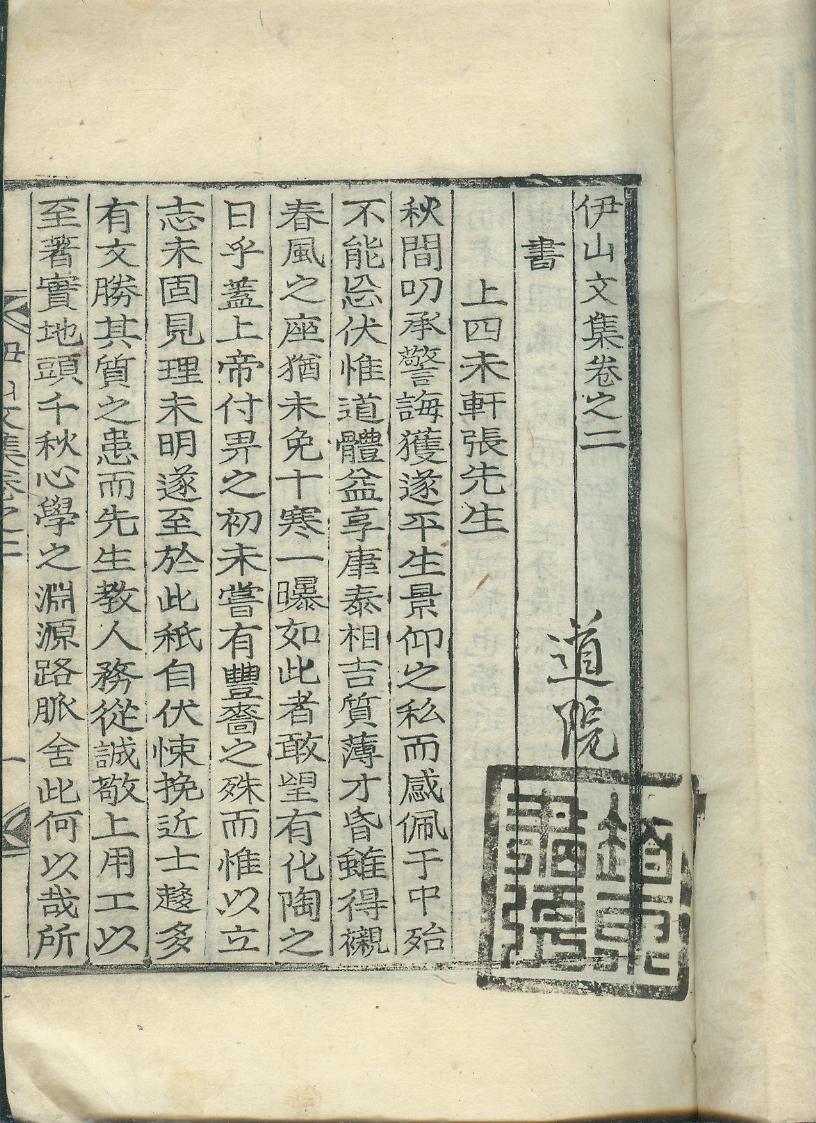 伊山文集卷之二
書
上四未軒張先生
秋間叨承警誨獲遂平生景仰之私而感佩于中殆
不能忘伏惟道體益享康泰相吉質薄才昏雖得襯
春風之座猶未免十寒一曝如此者敢望有化陶之
日乎蓋上帝付畀之初未嘗有豐嗇之殊而惟以立
志未固見理未明遂至於此秖自伏悚挽近士趍多
有文勝其質之患而先生教人務從誠敬上用工以
至著實地頭千秋心學之淵源路脈舍此何以哉所
伊山文集卷之二
一
道院